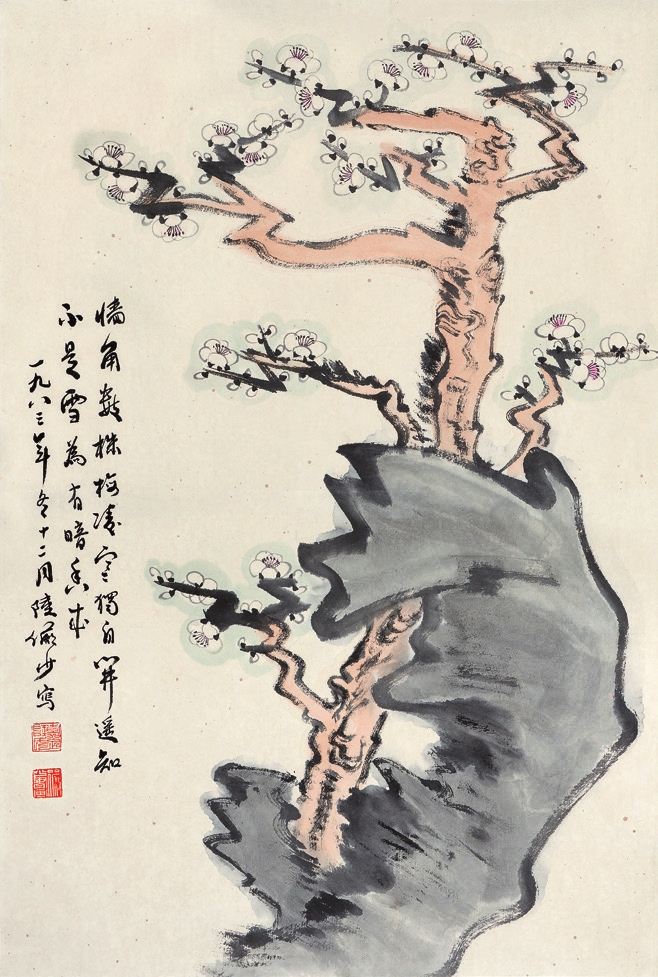 墻角數株梅凌寒獨自開遥知
不是雪為有暗香來
一九八三年冬十二月陸儼少寫